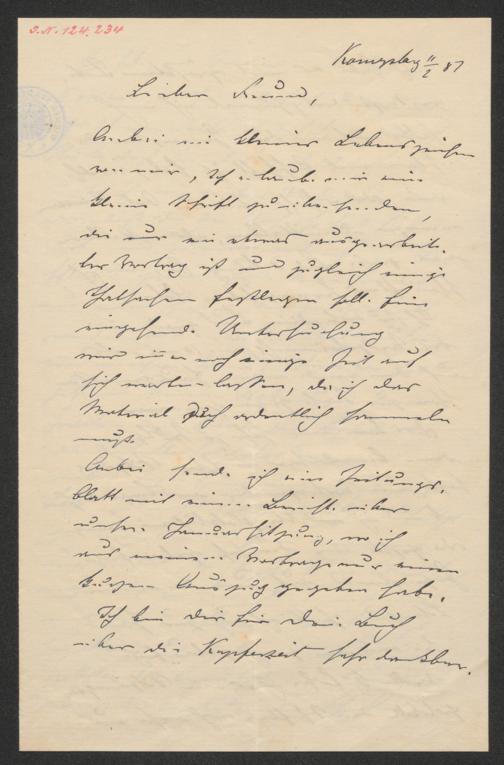 I.N. 124.234
Königsberg 11/2 87
Lieber Freund,
Anbei ein kleines Lebenszeichen
von mir, ich erlaube mir eine
kleine Schrift zu übersenden,
die nur ein etwas ausgearbeite-
ter Vortrag ist und zugleich einige
Thatsachen festlegen soll. Eine
eingehende Untersuchung
wird immer noch einige Zeit auf
sich warten lassen, da ich das
Material doch ordentlich sammeln
muß.
Anbei sende ich ein Zeitungs-
blatt mit einem Bericht über
unsere Januarsitzung, wo ich
aus meinem Vortrage nur einen
kurzen Auszug gegeben habe.
Ich bin Dir für Dein Buch
über die Kupferzeit sehr dankbar.